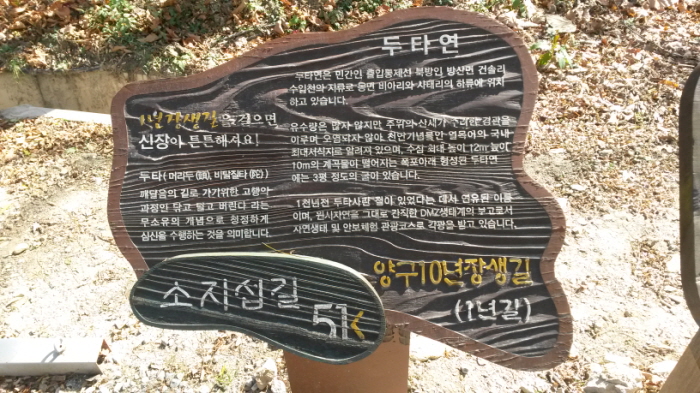 두타연
두타연은 민간인 출입통제선 북방인 방산면 건솔리
수입천의 지류로 동면 비아리와 사태리의 하류에 위치
하고 있습니다.
유수량은 많지 않지만 주위의 산세가 수려한 경관을
이루며, 오염되지 않아 천연기념물 열목어의 국내
최대서식지로 알려져 있으며, 수심 최대 높이 12m 높이
10m의 계곡물이 떨어지는 폭포아래 형성된 두타연
에는 3평 정도의 굴이 있습니다.
1천년전 두타사란 절이 있었다는 데서 연유된 이름
이며, 원시자연을 그대로 간직한 DMZ생태계의 보고로서
자연생태 및 안보체험 관광코스로 각광을 받고 있습니다.
1년 장생길을 걸으면
신장이 튼튼해져요!
두타(머리두(頭), 비탈질타(陀))
깨달음의 길로 가기위한 고행의
과정인 닦고 털고 버린다 라는
무소유의 개념으로 청정하게
심신을 수행하는 것을 의미합니다.
양구10년장생길
(1년길)
소지섭길
51<